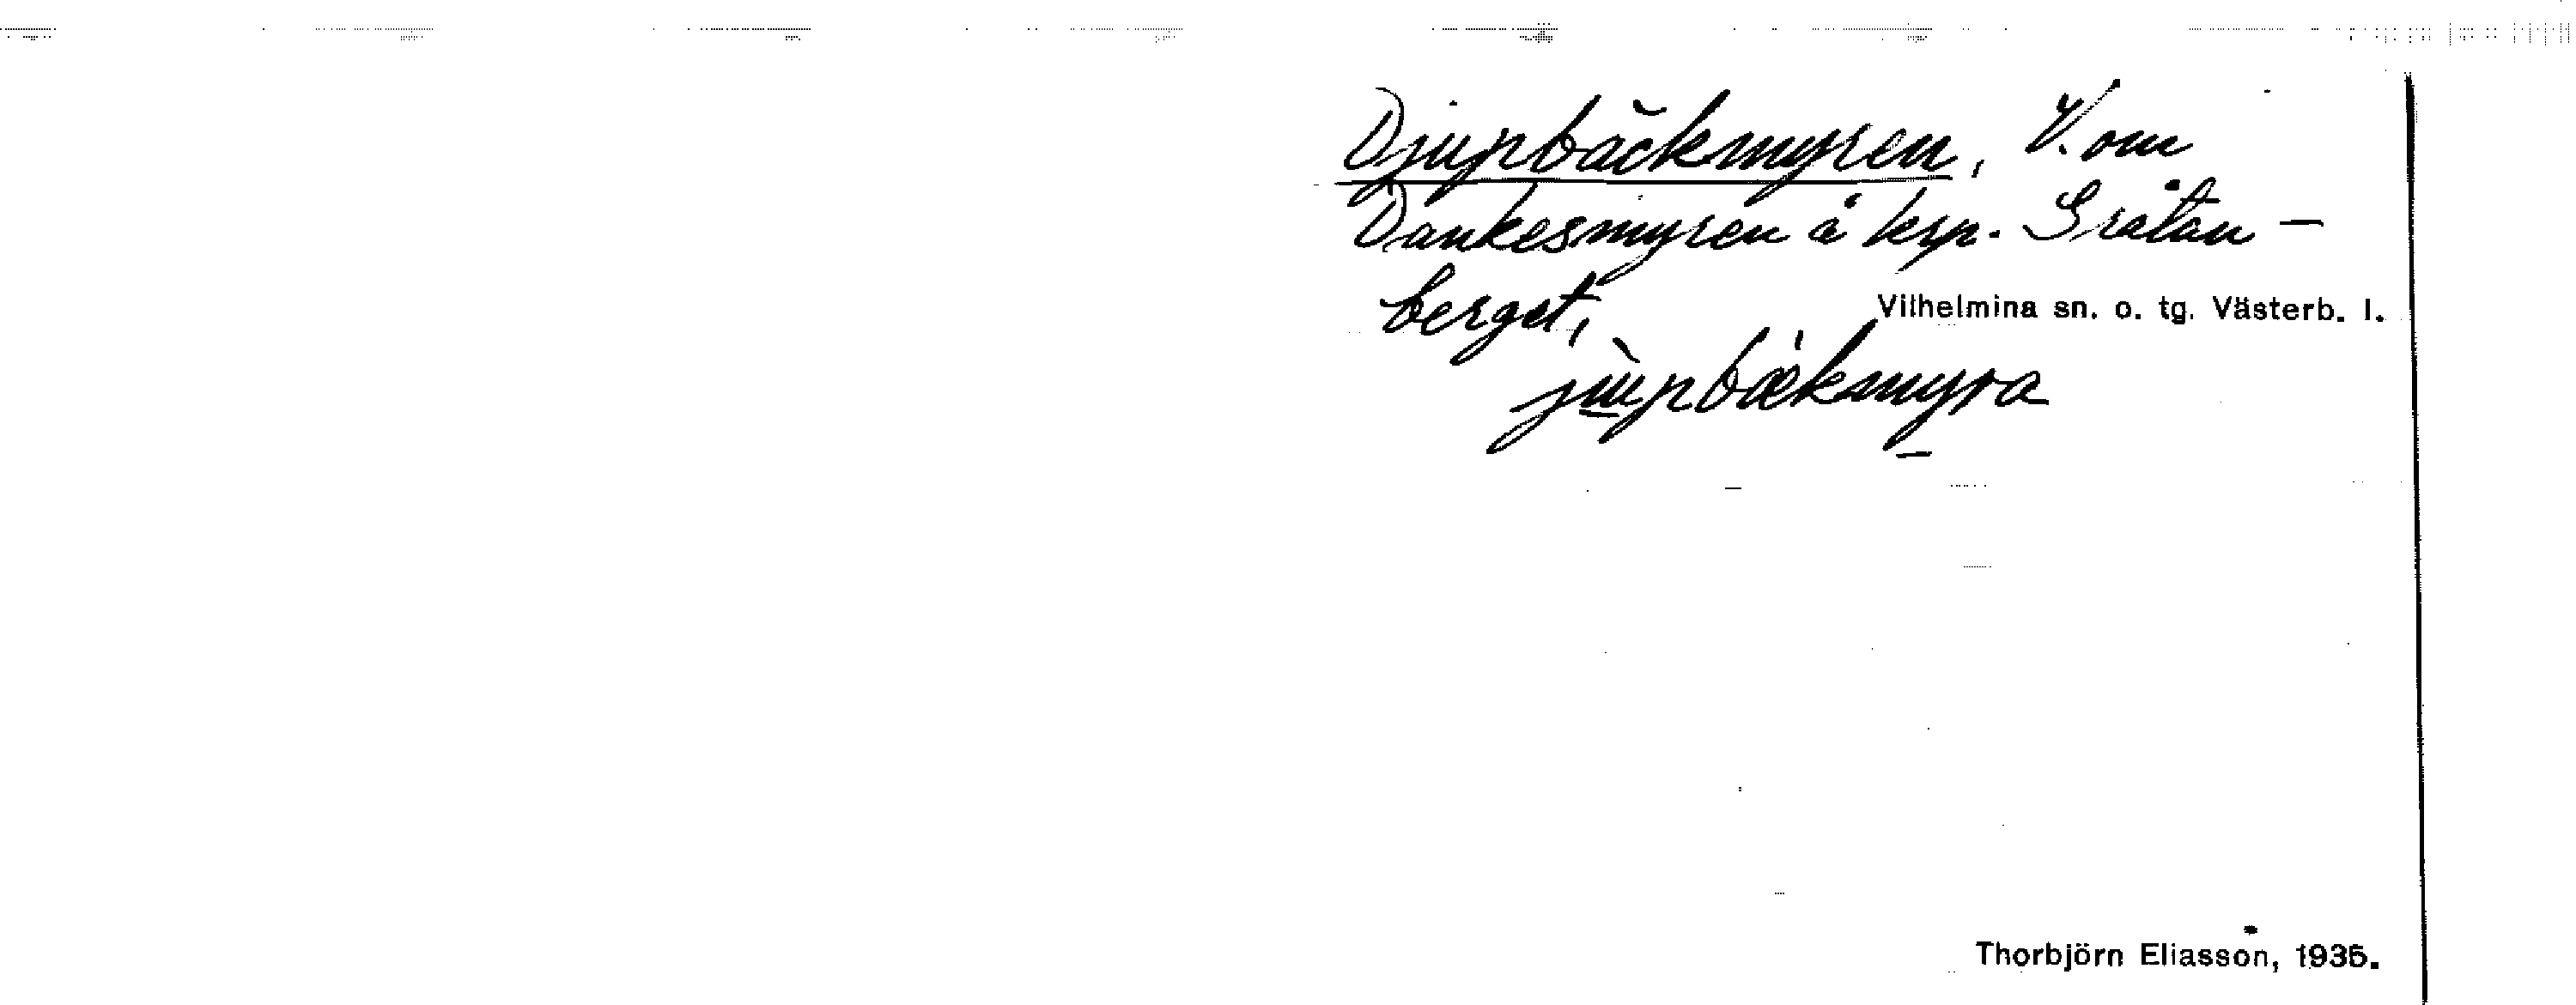 Djupbäckmyren, V. om
Dankesmyren å krp. Gråtan-
berget,
Vilhelmina sn. o. tg. Västerb. l.
jùpbǽkmyra
Thorbjörn Eliasson, 1935.